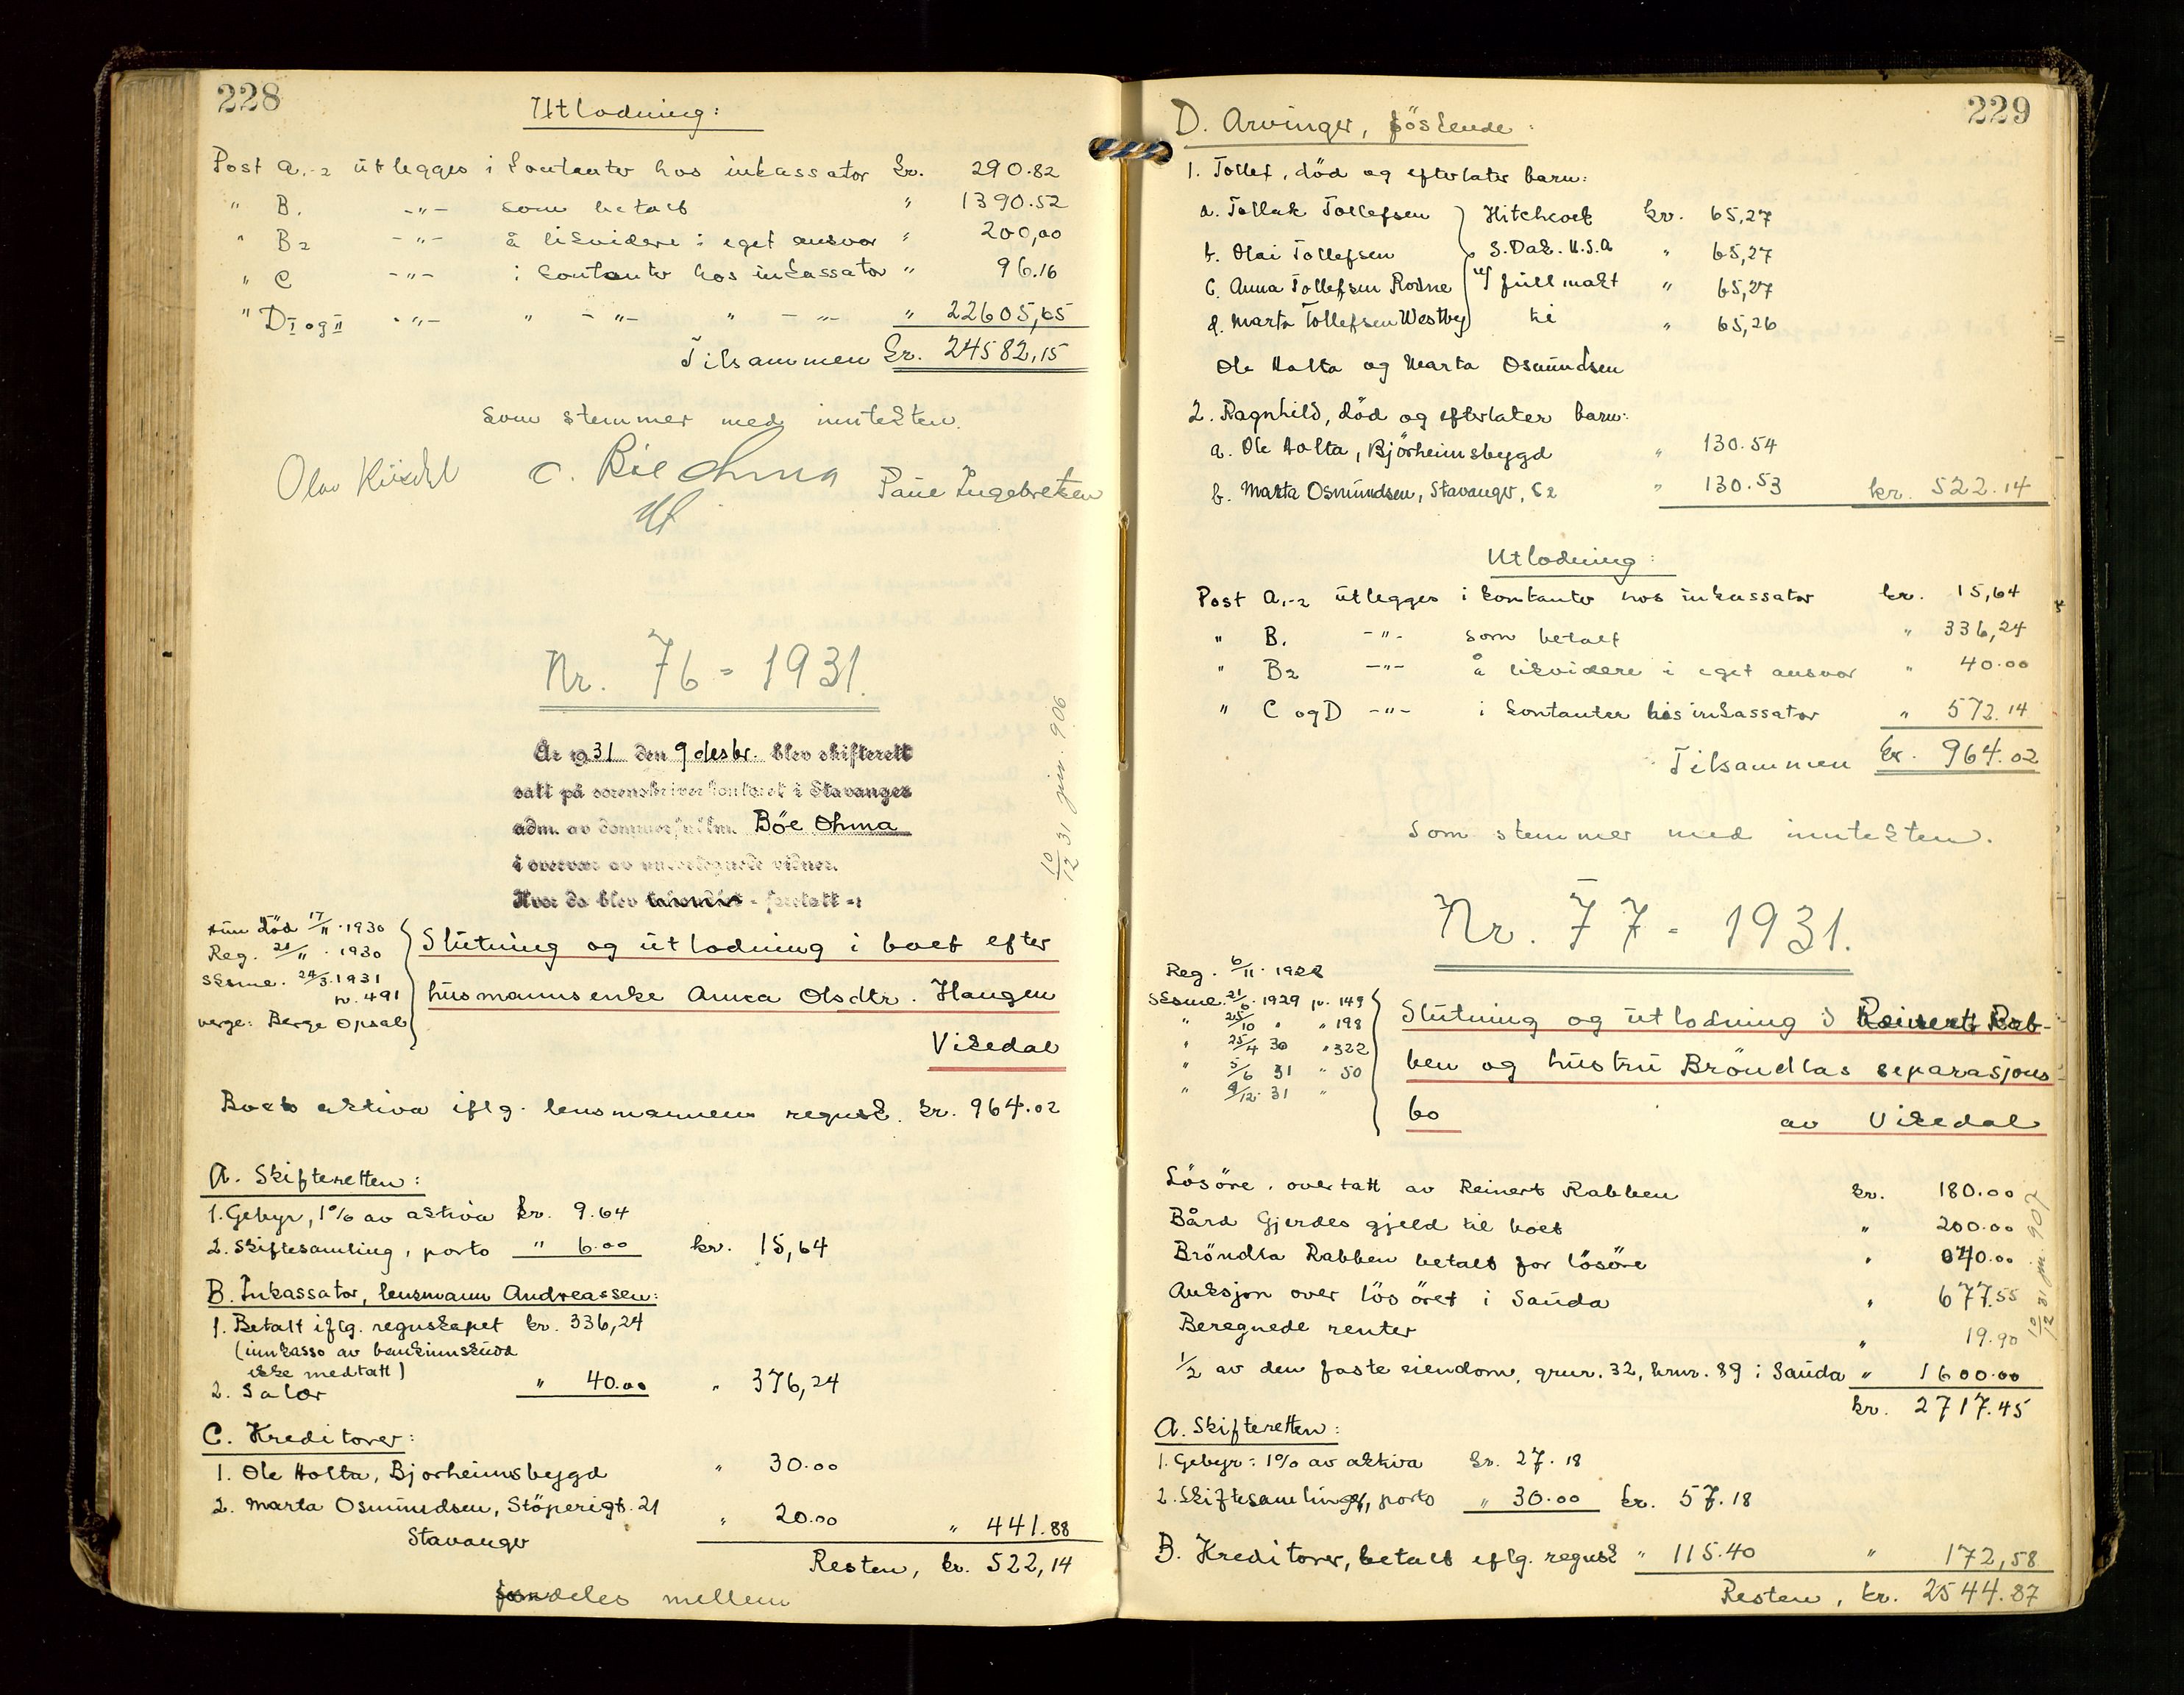 228
Utlodning:
Post A1-2 utlegges i kontanter hos inkassator kr. 290.82
" B1 -"- som betalt " 1390.52
" B2 -"- å likvidere i eget ansvar " 200,00
" C -"- i kontanter hos inkassator " 96.16
" D I og II -"- " -"- " -"- " 22605,65
Tilsammen kr. 24582,15
som stemmer med inntekten.
C. Bøe Ohma Paul Ingebretsen
Nr. 76 - 1931.
År 1931 den 9 desbr. blev skifterett
satt på sorenskriverkontoret i Stavanger
adm. av dommerfullm. Bøe Ohma
i overvær av undertegnede vidner.
Hvor da blev foretatt:
10/12 31 jnr. 906
Hun död 17/11 . 1930
Reg. 21/11 . 1930
SkSml. 24/3.1931
p. 491
verge: Berge Opsal
Slutning og utlodning i boet efter
husmannsenke Anna Olsdtr. Haugen
Vikedal
Boets aktiva iflg. lensmannens regnsk. kr. 964.02
A. Skifteretten:
1. Gebyr, 1% av aktiva kr. 9.64
2. Skiftesamling, porto " 6.00 kr. 15,64
B. Inkassator, lensmann Andreassen:
1. Betalt iflg. regnskapet kr. 336,24
(innkasso av bankinnskudd
ikke medtatt)
2. Salær " 40.00 " 376,24
C. Kreditorer:
1. Ole Holta, Bjorheimsbygd " 30.00
2. Marta Osmundsen, Stöperigt. 21
Stavanger " 20.00 " 441.88
Resten, kr. 522,14
deles mellem
229
D. Arvinger, söskende:
1. Tollef, död og efterlater barn:
a. Tollak Tollefsen Hitchcock kr. 65,27
b. Olai Tollefsen S.Dak. U.S.A " 65,27
c. Anna Tollefsen Rodne v/ fullmakt " 65,27
d. Marta Tollefsen Westby til " 65,26
Ole Holta og Marta Osmundsen
2. Ragnhild, död og efterlater barn:
a. Ole Holta, Björheimsbygd " 130.54
b. Marta Osmundsen, Stavanger, " 130.53 kr. 522.14
Utlodning:
Post A1-2 utlegges i kontanter hos inkassator kr. 15,64
" B1 -"- som betalt " 336,24
" B2 -"- å likvidere i eget ansvar " 40.00
" C og D -"- i kontanter hos inkassator " 572.14
Tilsammen kr. 964.02
som stemmer med inntekten.
Nr. 77 - 1931.
Reg. 6/11. 1928
SkSml. 21/6. 1929 p. 149
" 25/10 " " 198
" 25/4 30 " 322
" 5/6 31 " 50
" 9/12. 31 "
Slutning og utlodning i Reinert Rab-
ben og hustru Bröndlas separasjons-
bo av Vikedal
Lösöre, overtatt av Reinert Rabben kr. 180.00
Bård Gjerdes gjeld til boet " 200.00
Bröndla Rabben betalt for lösöre " 040.00
Auksjon over lösöret i Sauda " 677.55
Beregnede renter " 19.90
1/2 av den faste eiendom, grnr. 32, brnr. 89 i Sauda " 1600.00
kr. 2717.45
10/12 31 jnr. 907
A. Skifteretten:
1. Gebyr: 1% av aktiva kr. 27.18
2. Skiftesamling, porto " 30.00 kr. 57.18
B. Kreditorer, betalt iflg. regnsk " 115.40 " 172,58
Resten, kr. 2544.87